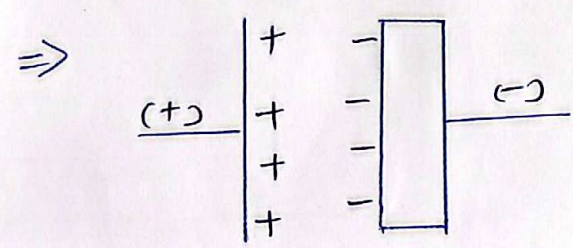 ⇒
+ −
(+) + − (−)
+ −
+ −